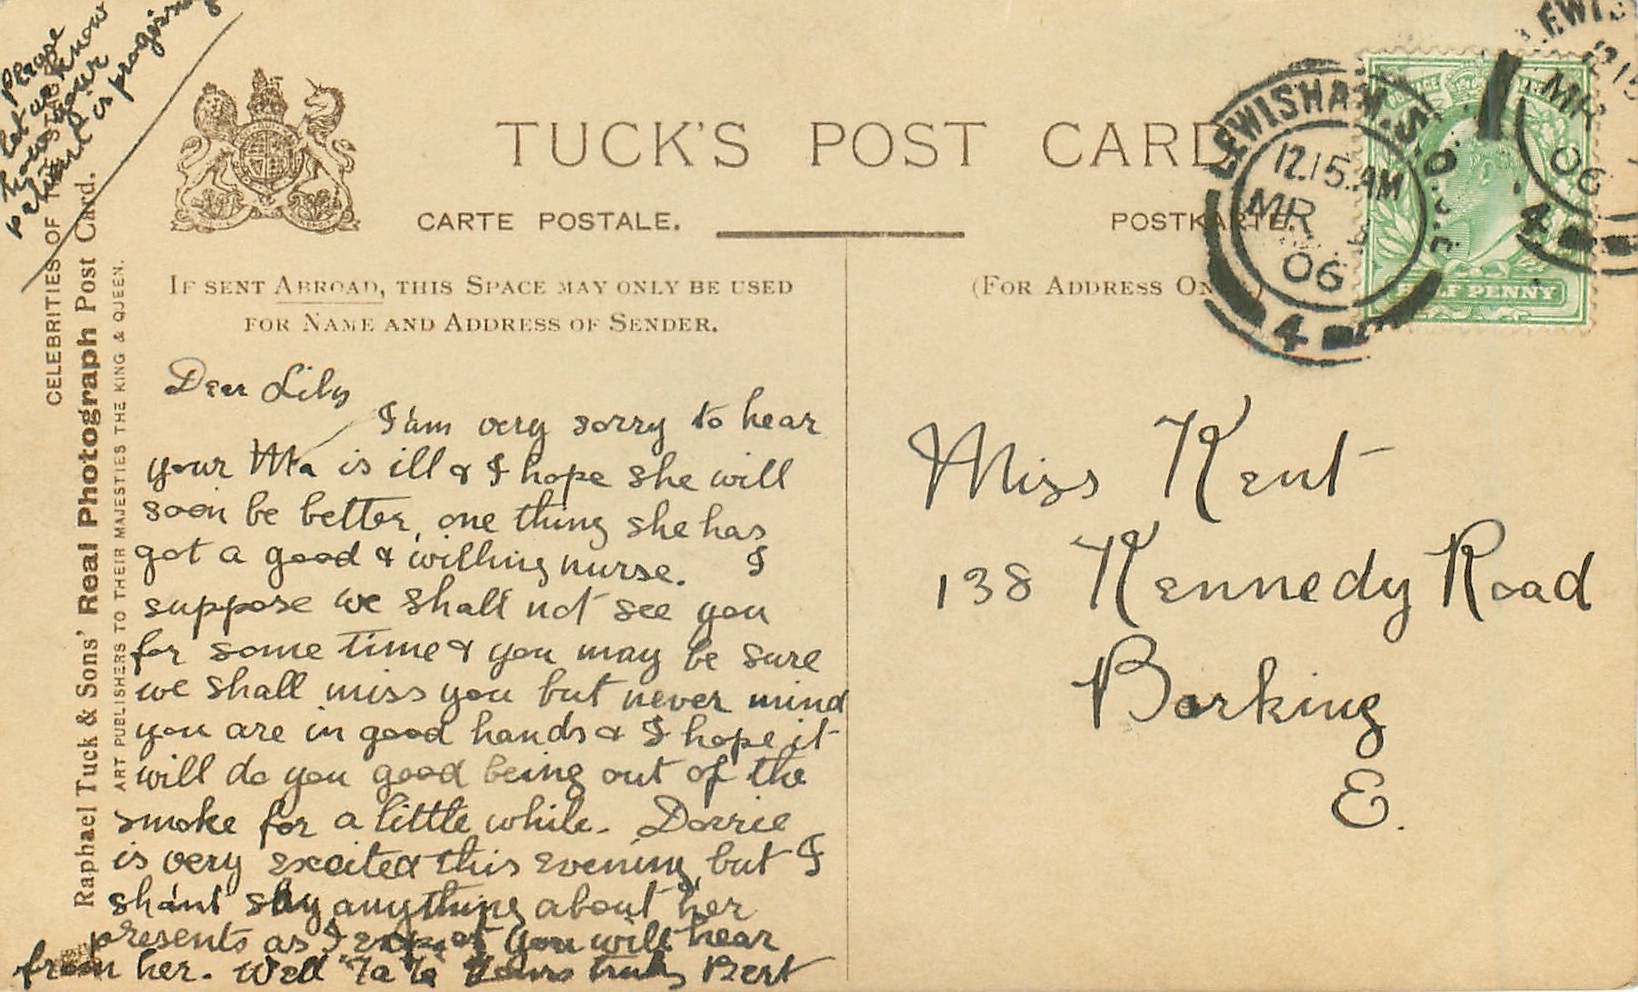 Please
let us know
how your
patient is progising
TUCK'S POST CARD
CARTE POSTALE.
POSTKARTE.
IF SENT ABROAD, THIS SPACE MAY ONLY BE USED
FOR NAME AND ADDRESS OF SENDER.
(FOR ADDRESS ON
LEWISHAM. S.O.
12.15.AM
MR
06
4
HALF PENNY
LEWIS
12.15
MR
06
4
CELEBRITIES OF
Raphael Tuck & Sons' Real Photograph Post Card.
ART PUBLISHERS TO THEIR MAJESTIES THE KING & QUEEN.
Dear Lily
I am very sorry to hear
your Ma is ill & I hope she will
soon be better, one thing she has
got a good & willing nurse. I
suppose we shall not see you
for some time & you may be sure
we shall miss you but never mind
you are in good hands & I hope it
will do you good being out of the
smoke for a little while. Dorrie
is very excited this evening, but I
shant say anything about her
presents as I expect you will hear
from her. Well Ta Ta Yours truly Bert
Miss Kent
138 Kennedy Road
Barking
E.